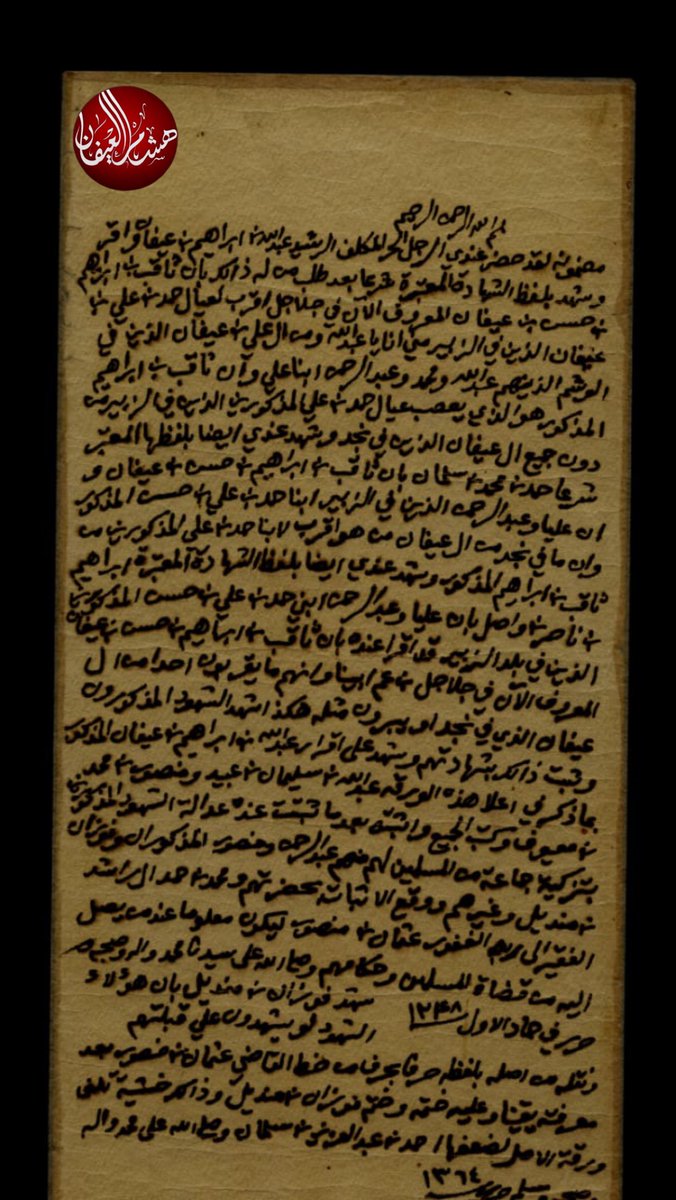 هشام العيفان
بسم الله الرحمن الرحيم
مضمونه لقد حضر عندي الرجل الحر المكلف الرشيد عبدالله بن ابراهيم بن عيفان واقر
وشهد بلفظ الشهادة المعتبرة شرعا بعد طلب من له ذالك بأن ثاقب بن ابراهيم
بن حسن بن عيفان المعروف الآن في جلاجل اقرب لعيال حمد بن علي بن
عيفان الذين في الزبير مني انا يا عبدالله ومن ال علي بن عيفان الذين في
الوشم الذينهم عبدالله ومحمد وعبدالرحمن ابنا علي وآن ثاقب بن ابراهيم
المذكور هو الذي يعصب عيال حمد بن علي المذكورين الذين في الزبير من
دون جميع ال عيفان الذين في نجد وشهد عندي ايضا بلفظها المعتبر
شرعا حمد بن محمد بن سلمان بان ثاقب بن ابراهيم بن حسن بن عيفان و
ان عليا وعبدالرحمن الذين في الزبير ابنا حمد بن علي بن حسن المذكور
وان ما في نجد من ال عيفان من هو اقرب لابنا حمد بن علي المذكورين من
ثاقب بن ابراهيم المذكور وشهد عندي ايضا بلفظ الشهادة المعتبرة ابراهيم
بن ناصر بن واصل بان عليا وعبدالرحمن ابني حمد بن علي بن حسن المذكورين
الذين في بلد الزبير قد اقرا عنده بان ثاقب بن ابراهيم بن حسن بن عيفان
المعروف الآن في جلاجل بن عم ابينا وانهم ما يقربون احدا من ال
عيفان الذي في نجد او يبرون مثله هكذا اشهد الشهود المذكورون
وثبت ذالك بشهادتهم وشهد على اقرار عبدالله بن ابراهيم بن عيفان المذكور
بما ذكر في اعلا هذه الورقه عبدالله بن سليمان بن عبيد ومنصور بن محمد
بن معيوف وكتب الجميع واثبته بعد ما ثبتت عنده عدالة الشهود المذكورين
بتزكية جماعة من المسلمين لهم منهم عبدالرحمن ومنصور المذكوران وفوزان
بن منديل وغيرهم ووقع الاثبات بحضرتهم ومحمد بن حمد ال راشد
الفقير الى الغفور عثمان بن منصور ليكون معلوما عند من يصل
اليه من قضاة المسلمين وحكامهم وصلى الله على سيدنا محمد واله وصحبه
حرر في جماد الاول ١٢٤٨
شهد فوزان بن منديل بان هؤلاء
الشهود يشهدون علي قبلتهم
ونقله من اصله بلفظه حرفا بحرف من خط القاضي عثمان بن منصور بعد
معرفته يقينا وعليه ختمه وختم فوزان بن منديل وذالك خشية تلف
ورقة الاصل لضعفها احمد بن عبدالعزيز بن سلمان وصلى الله على محمد واله
وصحبه وسلم ١٣٦٤